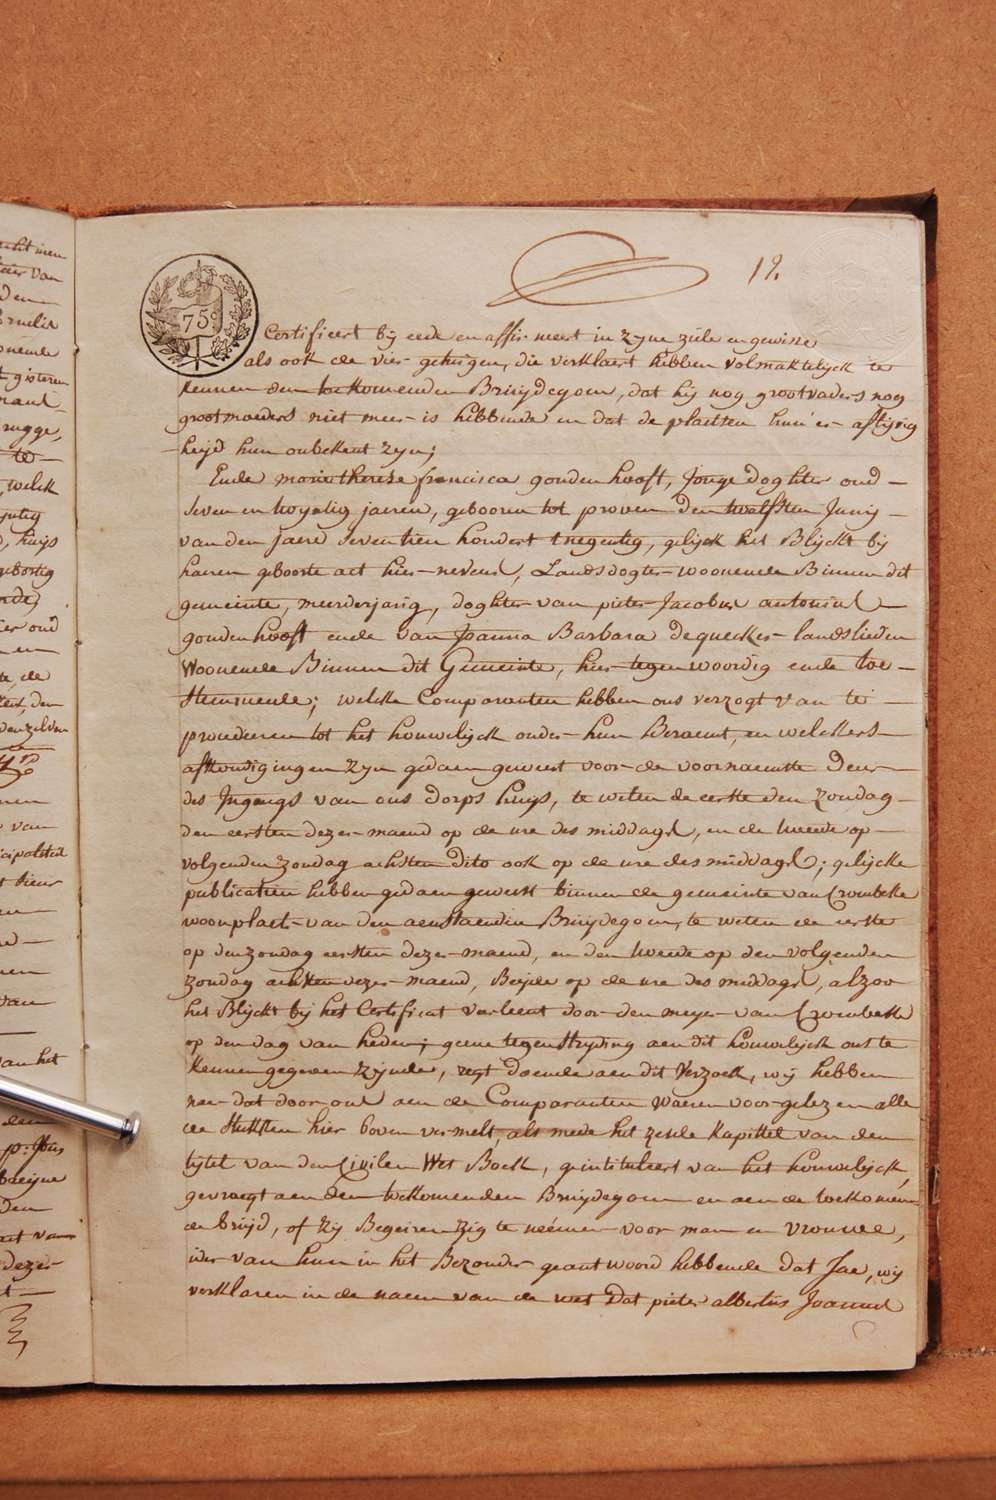 12.
75
Certificeert bij eede en affirmeert in zijne ziele en gewisse
als ook de vier getuigen, die verklaert hebben volmaktelijck te
kennen den toekomenden Bruijdegom, dat hij nog grootvaders nog
grootmoeders niet meer is hebbende en dat de plaetsen hun'er aflijvig
heijd hun onbekent zijn;
Ende marie therese francisca goudenhooft, jonge doghter oud
seven en twyntig jaeren, gebooren tot proven den twelfsten Junij
van den jaere seventien hondert tnegentig, gelijck het Blijckt bij
haeren geboorte act hier nevens, Landsdogter woonende Binnen dit
gemeinte, meerderjarig, doghter van pieter Jacobus antonius
goudenhooft ende van Joanna Barbara dequecker landslieden
Woonende Binnen dit Gemeinte, hier tegenwoordig ende toe-
stemmende; welcke Comparanten hebben ons verzogt van te
proudeeren tot het houwelijck onder hun Beraemt, en welckers
afkondigingen zijn gedaen geweest voor de voornaemste deur
des Ingangs van ons dorps huijs, te weten de eerste den zondag
den eersten dezer maend op de ure des middags, en de tweede op
volgenden zondag achsten dito ook op de ure des middags; gelijcke
publicatien hebben gedaen geweest binnen de gemeinte van Crombeke
woonplaets van den aenstaenden Bruijdegom, te weten de eerste
op den zondag eersten dezer maend, en den tweede op den volgenden
zondag achsten dezer maend, Beijde op de ure des middags, alzoo
het Blijckt bij het Certificat verleent door den meijer van Crombeke
op den dag van heden; geene tegenstryding aen dit houwelijck ons te
kennen gegeven zijnde, regt doende aen dit verzoek, wij hebben
nae dat door ons aen de Comparanten waeren voorgelezen alle
de stukken hier boven vermelt, als mede het zesde kapittel van den
tijtel van den Civilen Wet Boek, geintituleert van het houwelijck,
gevraegt aen den toekomenden Bruijdegom en aen de toekomen
de bruijd, of zij Begeiren zig te neémen voor man en vrouwe,
ider van hun in het Bezonder geantwoord hebbende dat Jae, wij
verklaren in de naem van de wet dat pieter albertus Joannes